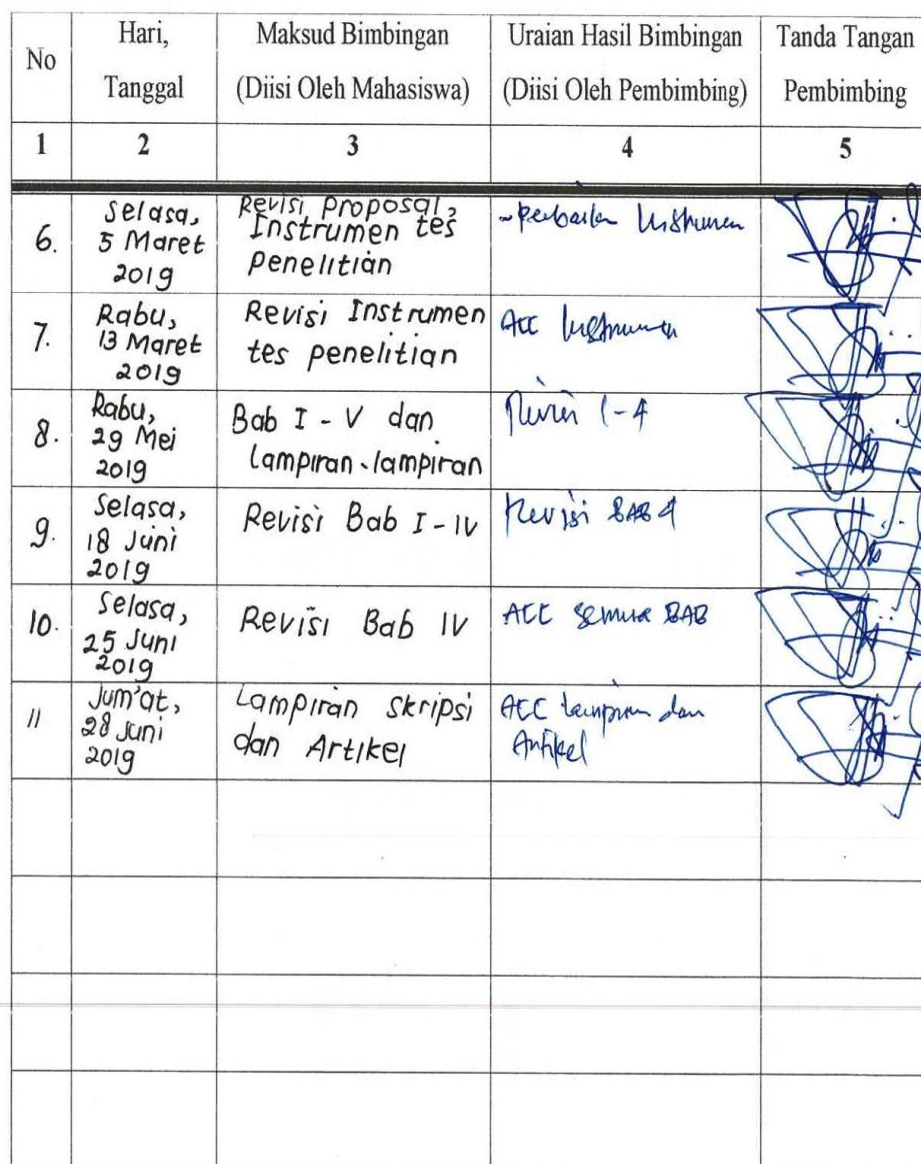 No
Hari,
Tanggal
Maksud Bimbingan
(Diisi Oleh Mahasiswa)
Uraian Hasil Bimbingan
(Diisi Oleh Pembimbing)
Tanda Tangan
Pembimbing
1 2 3 4 5
6.
Selasa,
5 Maret
2019
Revisi Proposal,
Instrumen tes
penelitian
Instrumen
7.
Rabu,
13 Maret
2019
Revisi Instrumen
tes penelitian
ACC Instrumen
8.
Rabu,
29 Mei
2019
Bab I - V dan
Lampiran-lampiran
Revisi 1-4
9.
Selasa,
18 Juni
2019
Revisi Bab I - IV
Revisi BAB 4
10.
Selasa,
25 Juni
2019
Revisi Bab IV
ACC Semua BAB
11
Jum'at,
28 Juni
2019
Lampiran skripsi
dan Artikel
ACC Lampiran dan
Artikel